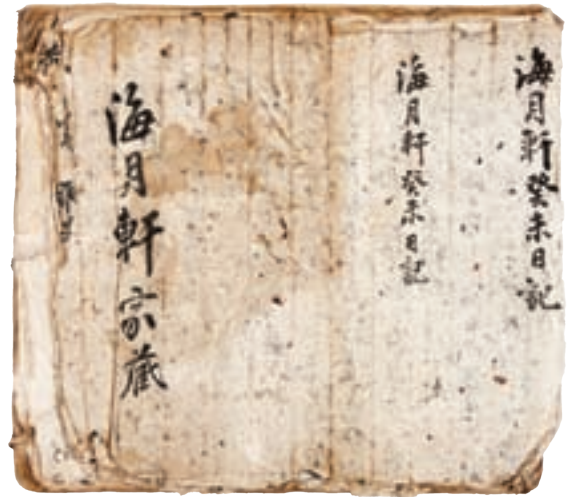 海月軒癸未日記
海月軒癸未日記
海月軒宗蔵